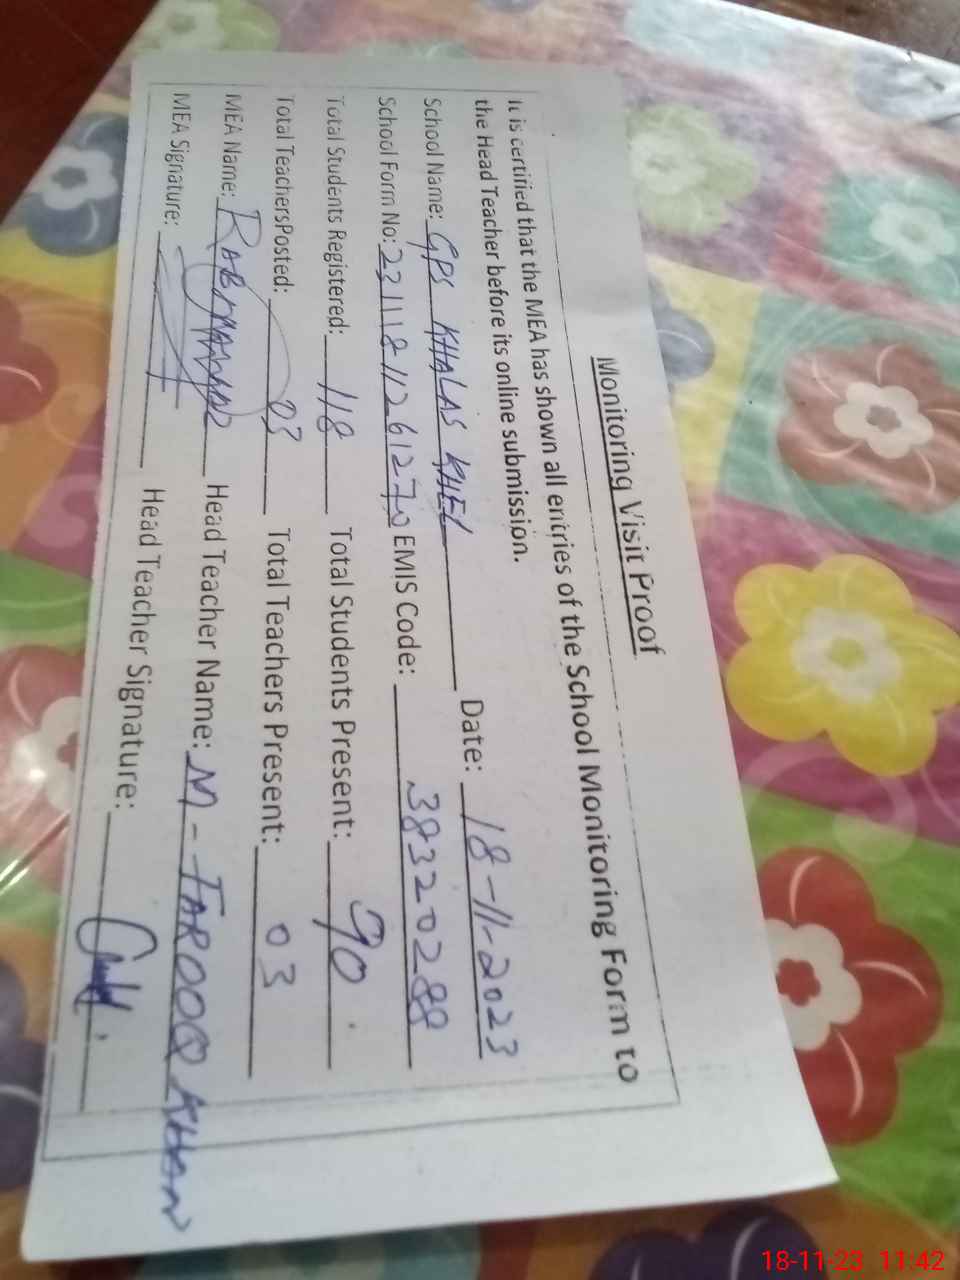 Monitoring Visit Proof
It is certified that the MEA has shown all entries of the School Monitoring Form to
the Head Teacher before its online submission.
School Name: GPS KHALAS KHEL Date: 18-11-2023
School Form No: EMIS Code: 38320288
Total Students Registered: 118 Total Students Present: 90
Total TeachersPosted: 03 Total Teachers Present: 03
MEA Name: Head Teacher Name: M-TAROOQ KHAN
MEA Signature: Head Teacher Signature:
18-11-23 11:42